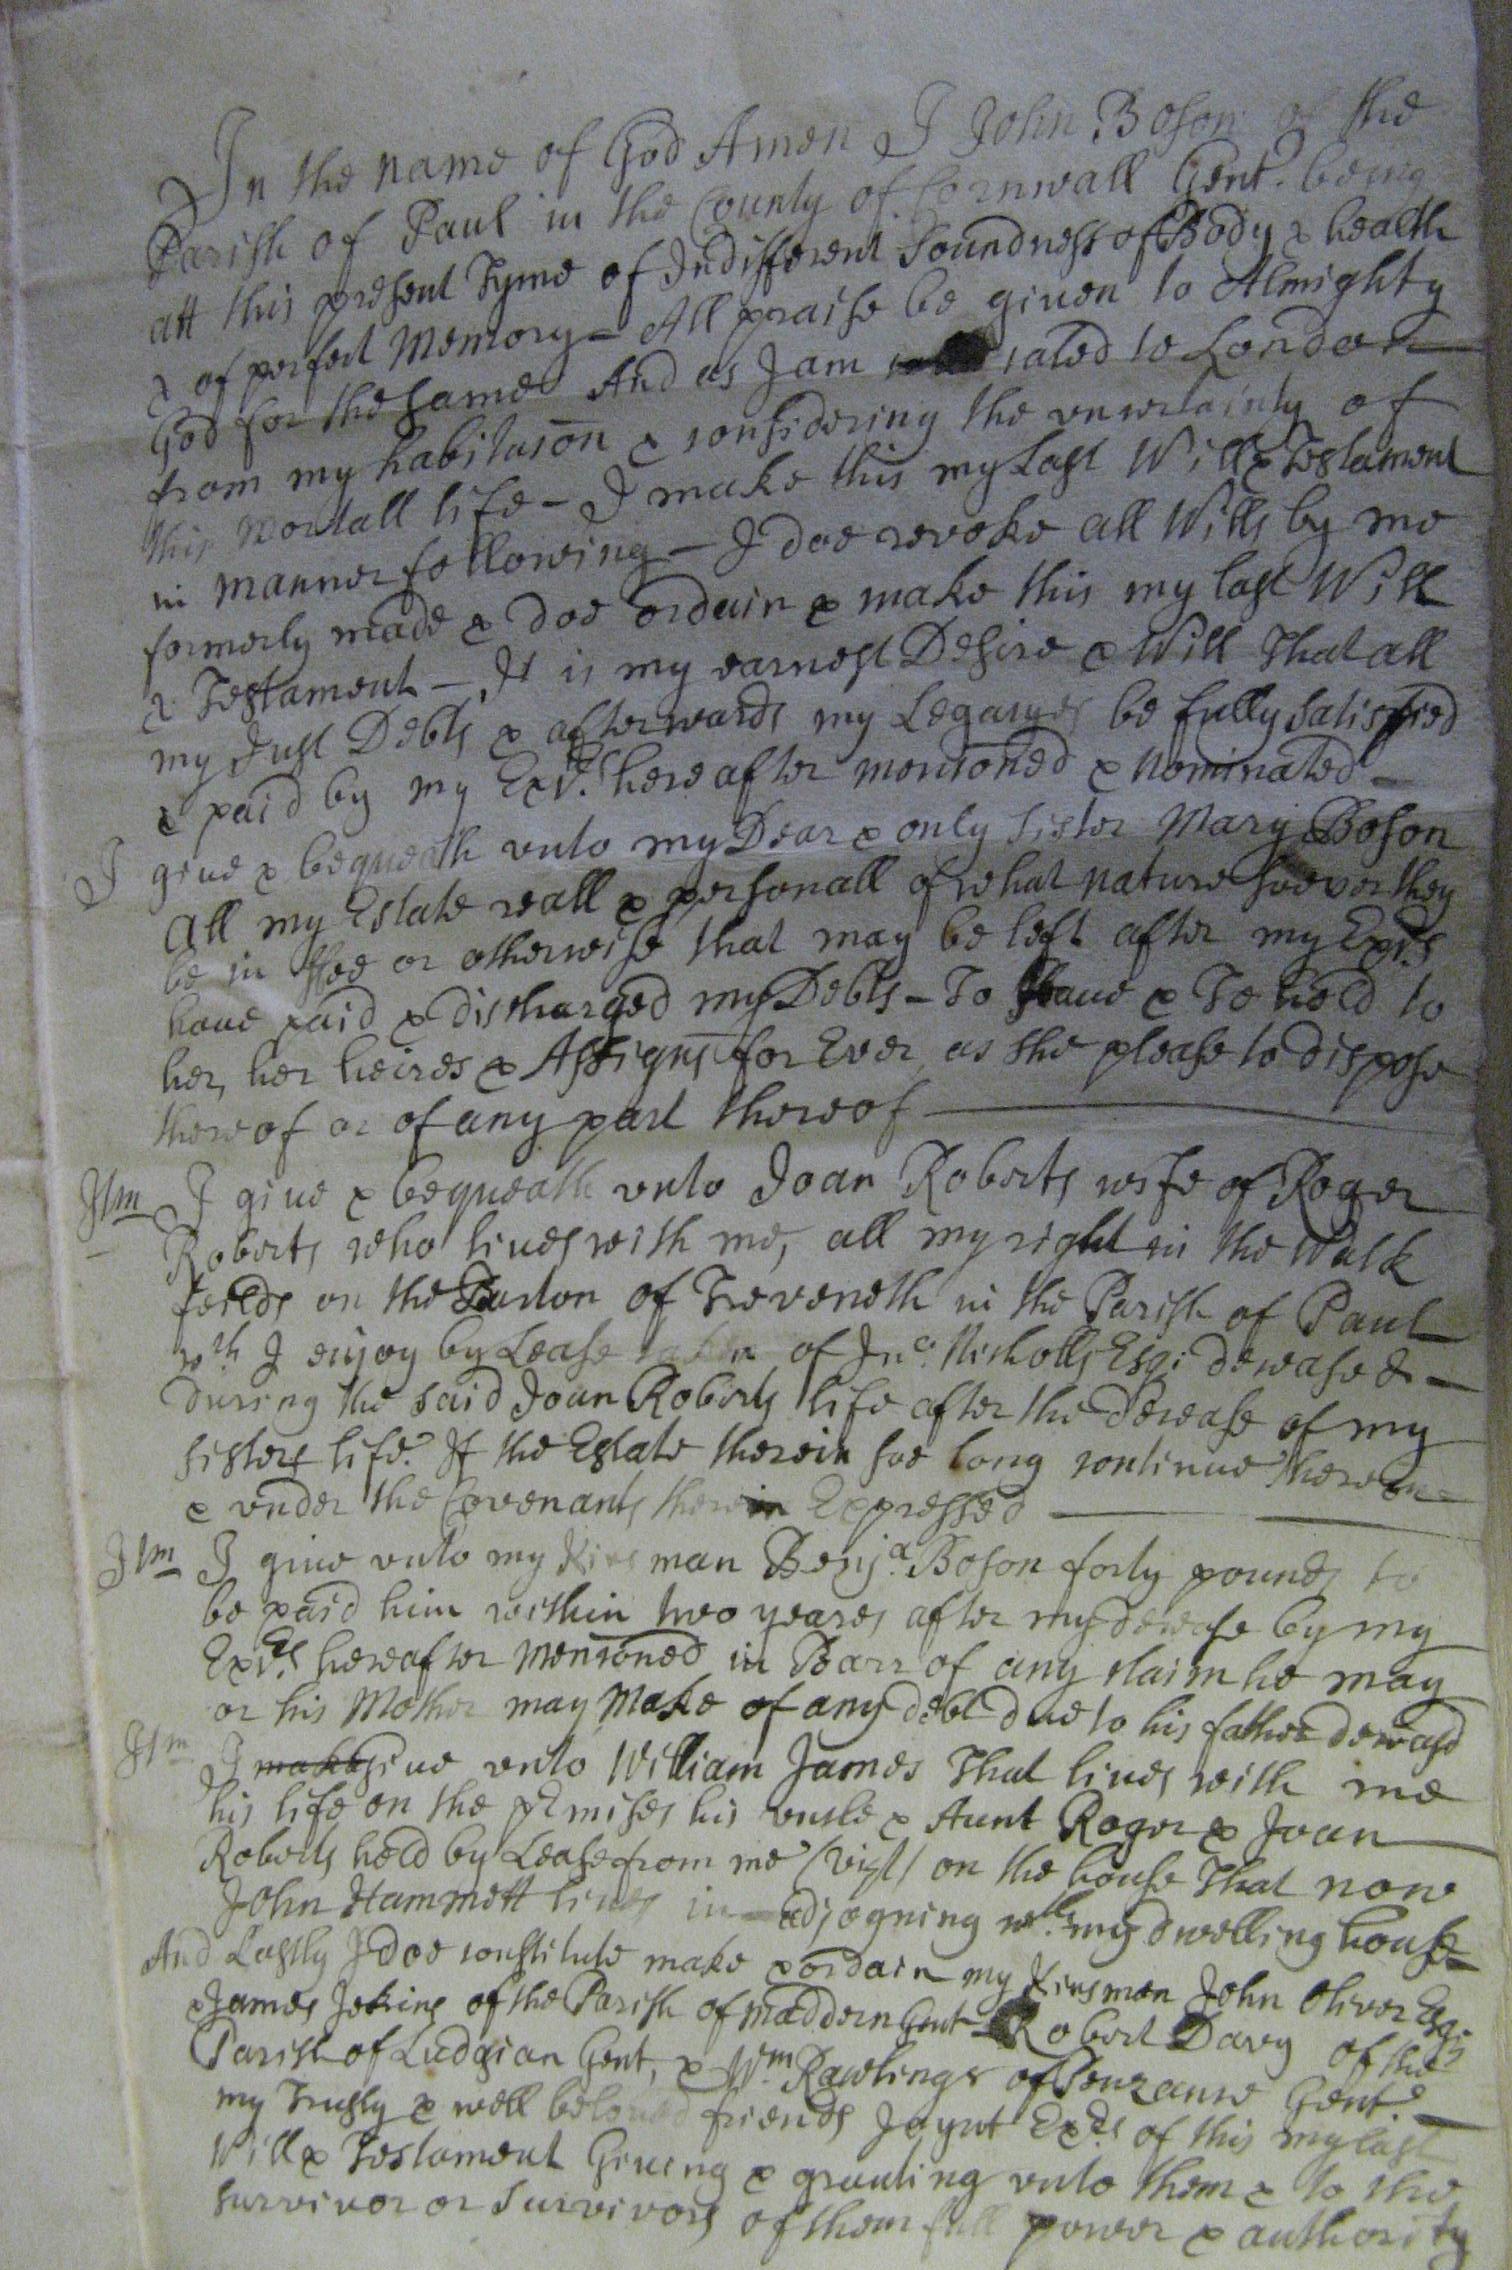 In the name of God Amen I John Boson of the
Parish of Paul in the County of Cornwall Gent. being
att this present Tyme of Indifferent Soundness of Body & health
& of perfect Memory – All praise be given to Almighty
God for the same And as I am called to London
from my habitacōn & considering the uncertainty of
this mortall life – I make this my Last Will & Testament
in manner following – I doe revoke all Wills by me
formerly made & doe ordain & make this my last Will
& Testament – It is my earnest Desire & Will That all
my Just Debts & afterwards my Legacyes be fully satisfied
& paid by my Exrs. hereafter mencōned & Nominated –
I give & bequeath unto my Dear & only Sister Mary Boson
All my Estate reall & personall of what nature soever they
be in ffee or otherwise that may be left after my Exrs.
have paid & discharged my Debts – To Have & To hold to
her, her heires & Assigns for Ever as she please to dispose
thereof or of any part thereof
Itm I give & bequeath unto Joan Roberts wife of Roger
Roberts who lives with me, all my right in the Walk
feilds on the Barton of Treveneth in the Parish of Paul
wch. I enjoy by Lease taken of Jno. Nicholls Esqr deceased –
during the said Joan Roberts life after the decease of my
sisters life. If the Estate therein soe long continue thereon
& under the Covenants therein Expressed
Itm I give unto my Kinsman Benja. Boson forty pounds to
be paid him within two yeares after my decease by my
Exrs. hereafter mencōned in Barr of any claim he may
or his Mother may Make of any debt due to his father deceasd
Itm I make give unto William James That lives with me
his life on the pEmises his uncle & Aunt Roger & Joan
Roberts held by Lease from me (vizt) on the house That now
John Hammett lives in adjoyning wth. my dwelling house
And Lastly I doe constitute make & ordain my Kinsmen John Oliver Esqr
& James Jenkins of the Parish of Maddern Gent Robert Davy of the
Parish of Ludgian Gent, & Wm. Rawlings of Penzance Gent.
my Trusty & well beloved friends Joynt Exrs. of this my last
Will & Testament Giveng & granting unto them & to the
survivor or survivors of them full power & authority